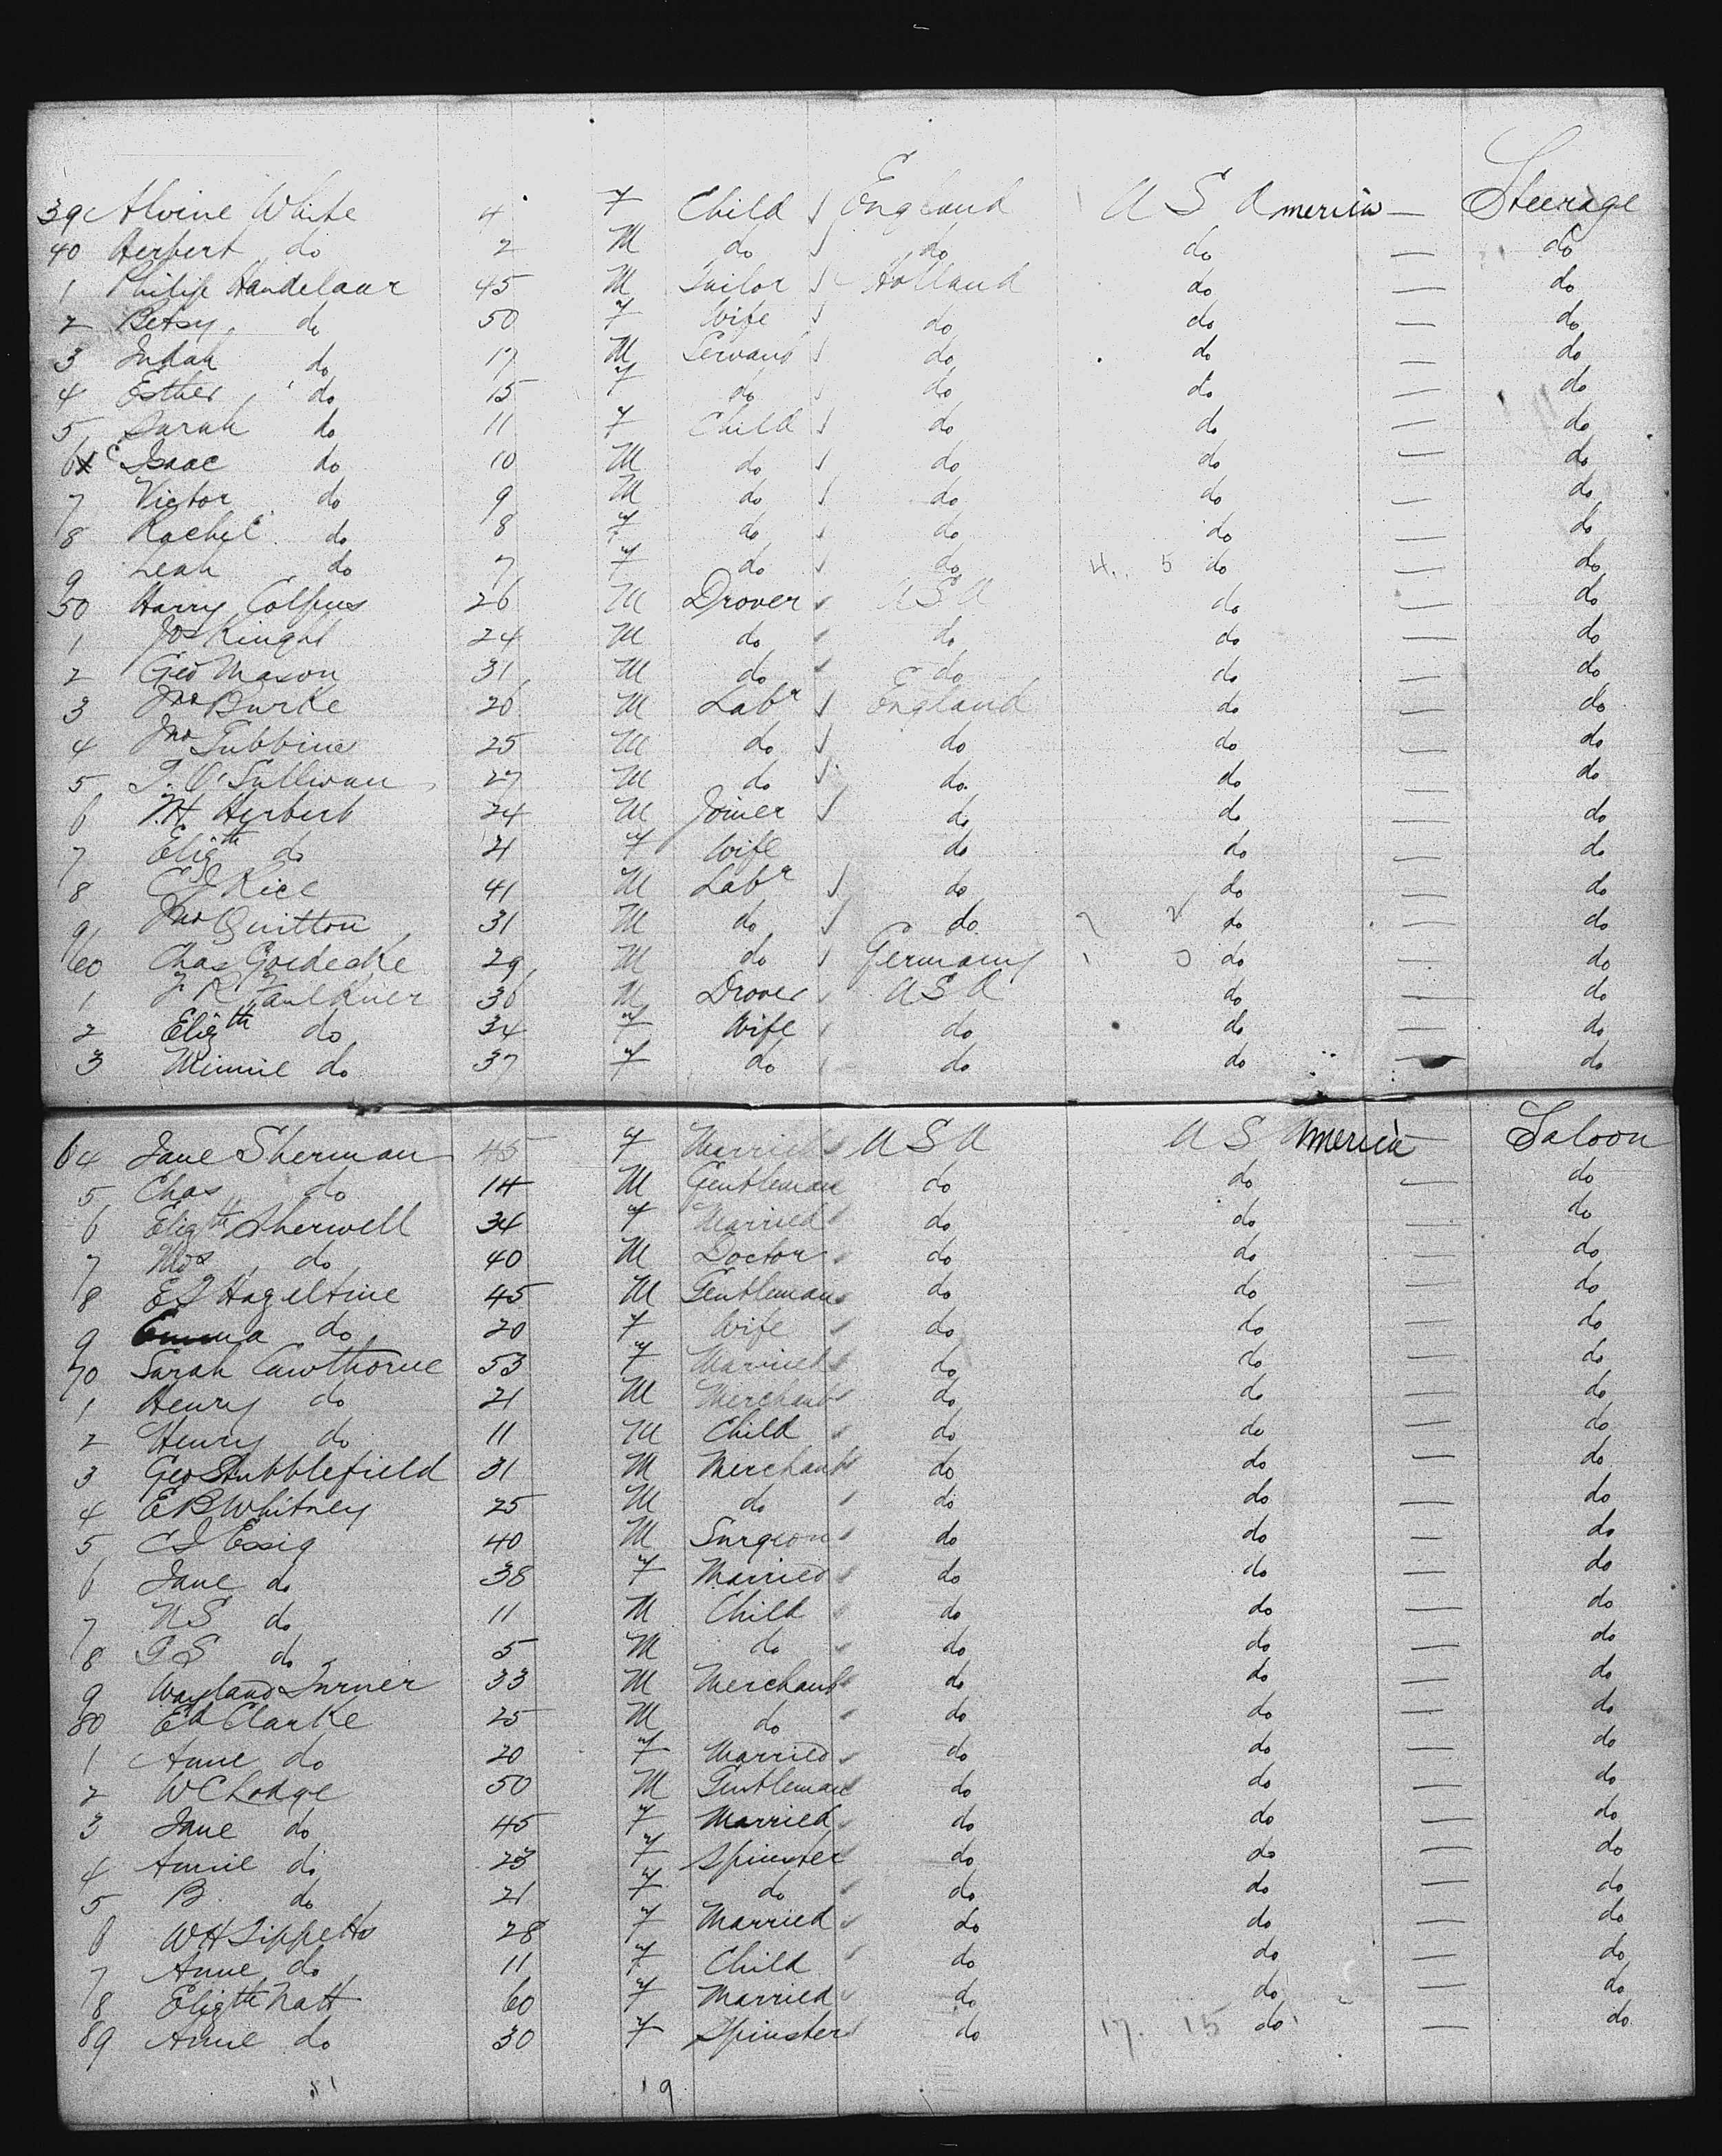 39 Alvine White 4 F Child England U S America — Steerage
40 Herbert do 2 M do do do — do
1 Philip Handelaar 45 M Tailor Holland do — do
2 Betsy do 50 F Wife do do — do
3 Judah do 17 M Servant do do — do
4 Esther do 15 F do do do — do
5 Sarah do 11 F Child do do — do
6 Isaac do 10 M do do do — do
7 Victor do 9 M do do do — do
8 Rachel do 8 F do do do — do
9 Leah do 7 F do do 4 5 do — do
50 Harry Colpus 26 M Drover U S A do — do
1 Jos Knight 24 M do do do — do
2 Geo Mason 31 M do do do — do
3 Jno Burke 26 M Labr England do — do
4 Jno Tubbins 25 M do do do — do
5 O'Sullivan 27 M do do do — do
6 Herbert 24 M Joiner do do — do
7 Elizth do 21 F Wife do do — do
8 Rice 41 M Labr do do — do
9 Jno Quitton 31 M do do do — do
60 Chas Goedecke 29 M do Germany do — do
1 Faulkner 36 M Drover U S A do — do
2 Elizth do 34 F Wife do do — do
3 Minnie do 37 F do do do — do
64 Jane Sherman 45 F Married U S A U S America — Saloon
5 Chas do 14 M Gentleman do do — do
6 Elizth Sherwell 34 F Married do do — do
7 do 40 M Doctor do do — do
8 Hazeltine 45 M Gentleman do do — do
9 Emma do 20 F Wife do do — do
70 Sarah Cawthorne 53 F Married do do — do
1 Henry do 21 M Merchant do do — do
2 Henry do 11 M Child do do — do
3 Geo Stubblefield 31 M Merchant do do — do
4 E B Whitney 25 M do do do — do
5 Essig 40 M Surgeon do do — do
6 Jane do 38 F Married do do — do
7 N S do 11 M Child do do — do
8 do 5 M do do do — do
9 Wayland Turner 33 M Merchant do do — do
80 Ed Clarke 25 M do do do — do
1 Anne do 20 F Married do do — do
2 W C Lodge 50 M Gentleman do do — do
3 Jane do 45 F Married do do — do
4 Annie do 23 F Spinster do do — do
5 B do 21 F do do do — do
6 W H Tippetts 28 F Married do do — do
7 Anne do 11 F Child do do — do
8 Elizth Natt 60 F Married do do — do
89 Annie do 30 F Spinster do 17. 15 do — do
19